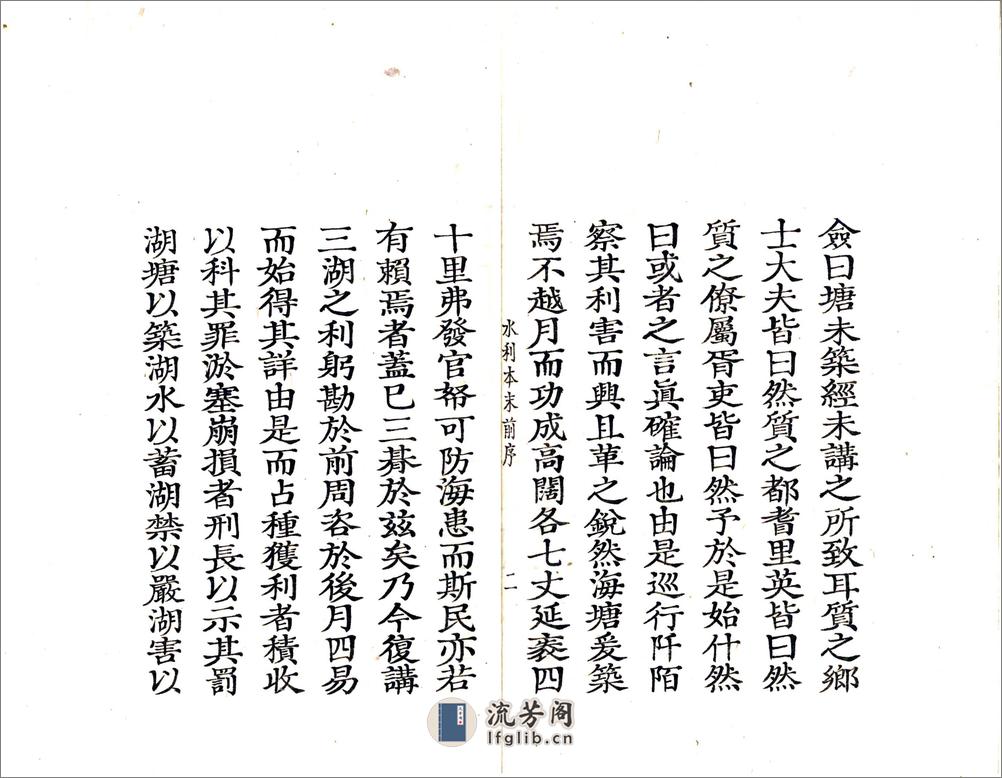 僉曰塘未築經未講之所致耳質之鄉
士大夫皆曰然質之都耆里英皆曰然
質之僚屬胥吏皆曰然予於是始什然
曰或者之言眞確論也由是巡行阡陌
察其利害而興且革之銳然海塘爰築
焉不越月而功成高闊各七丈延袤四
水利本末前序
二
十里弗發官帑可防海患而斯民亦若
有賴焉者蓋已三朞於兹矣乃今復講
三湖之利躬勘於前周咨於後月四易
而始得其詳由是而占種獲利者積收
以科其罪淤塞崩損者刑長以示其罰
湖塘以築湖水以蓄湖禁以嚴湖害以
流芳阁
lfglib.cn